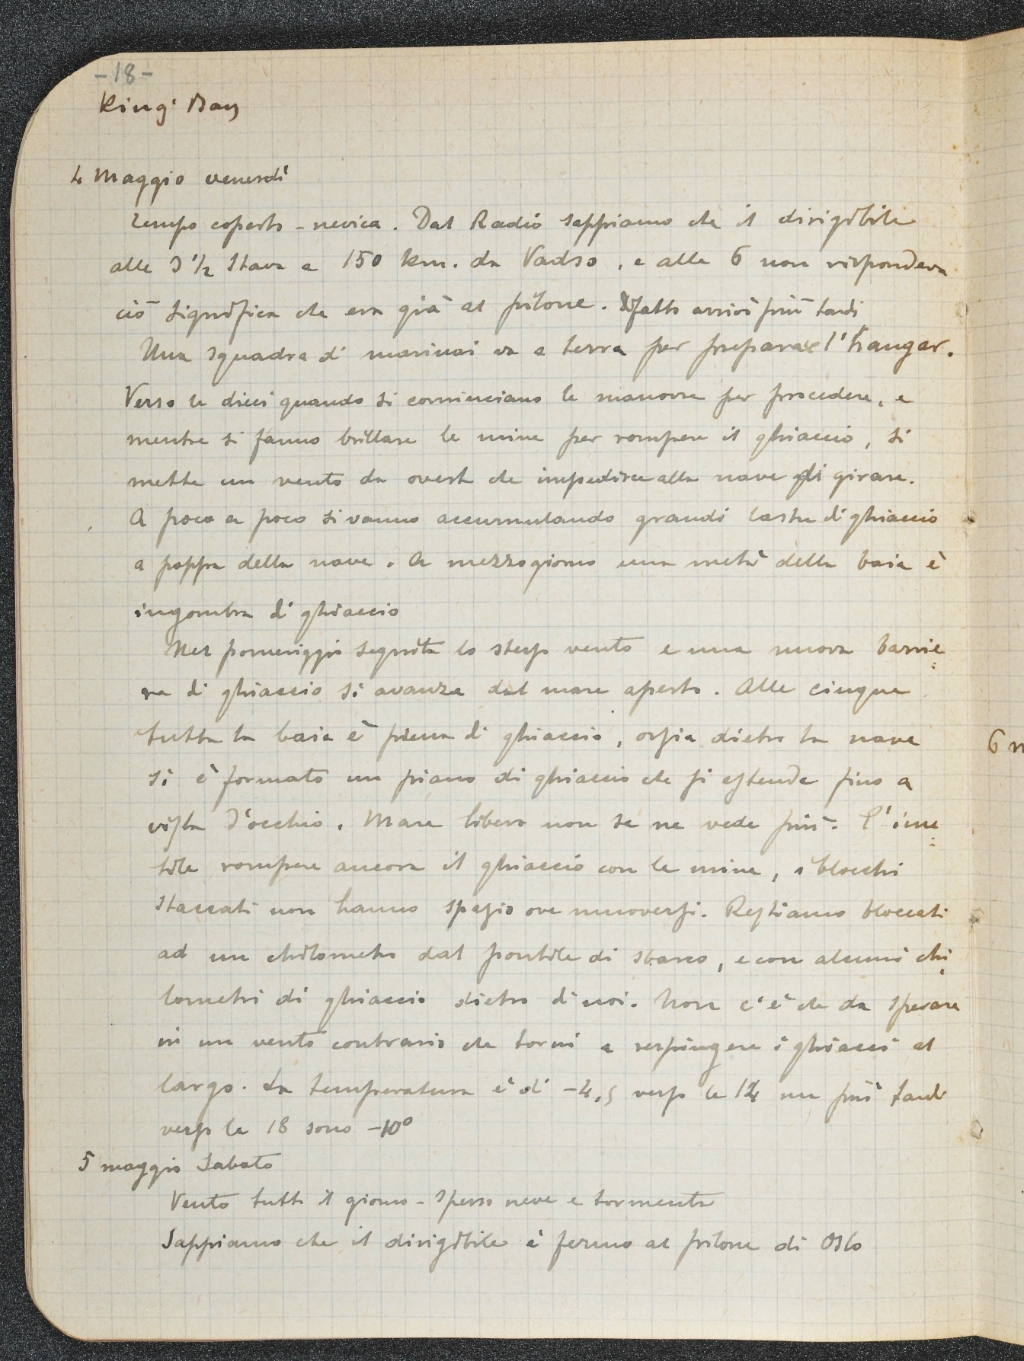 -18-
King' Bay
4 Maggio venerdì
Tempo coperto - nevica. Dal Radio sappiamo che il dirigibile
alle 3½ stava a 150 km. da Vadso, e alle 6 non rispondeva
ciò significa che era già al pilone. Difatto arrivò più tardi
Una squadra di marinai va a terra per preparare l'hangar.
Verso le dieci quando si cominciano le manovre per procedere, e
mentre si fanno brillare le mine per rompere il ghiaccio, si
mette un vento da ovest che impedisce alla nave di girare.
A poco a poco si vanno accumulando grandi lastre di ghiaccio
a poppa della nave. A mezzogiorno una metà della baia è
ingombra di ghiaccio
Nel pomeriggio seguita lo stesso vento e una nuova barrie=
ra di ghiaccio si avanza dal mare aperto. Alle cinque
tutta la baia è piena di ghiaccio, ossia dietro la nave
si è formato un piano di ghiaccio che si estende fino a
vista d'occhio. Mare libero non se ne vede più. È inu=
tile rompere ancora il ghiaccio con le mine, i blocchi
staccati non hanno spazio ove muoversi. Restiamo bloccati
ad un chilometro dal pontile di sbarco, e con alcuni chi
lometri di ghiaccio dietro di noi. Non c'è che da sperare
in un vento contrario che torni a respingere i ghiacci al
largo. La temperatura è di -4,5 verso le 14 ma più tardi
verso le 18 sono -10°
5 maggio Sabato
Vento tutto il giorno - spesso neve e tormenta
Sappiamo che il dirigibile è fermo al pilone di Oslo
6 m